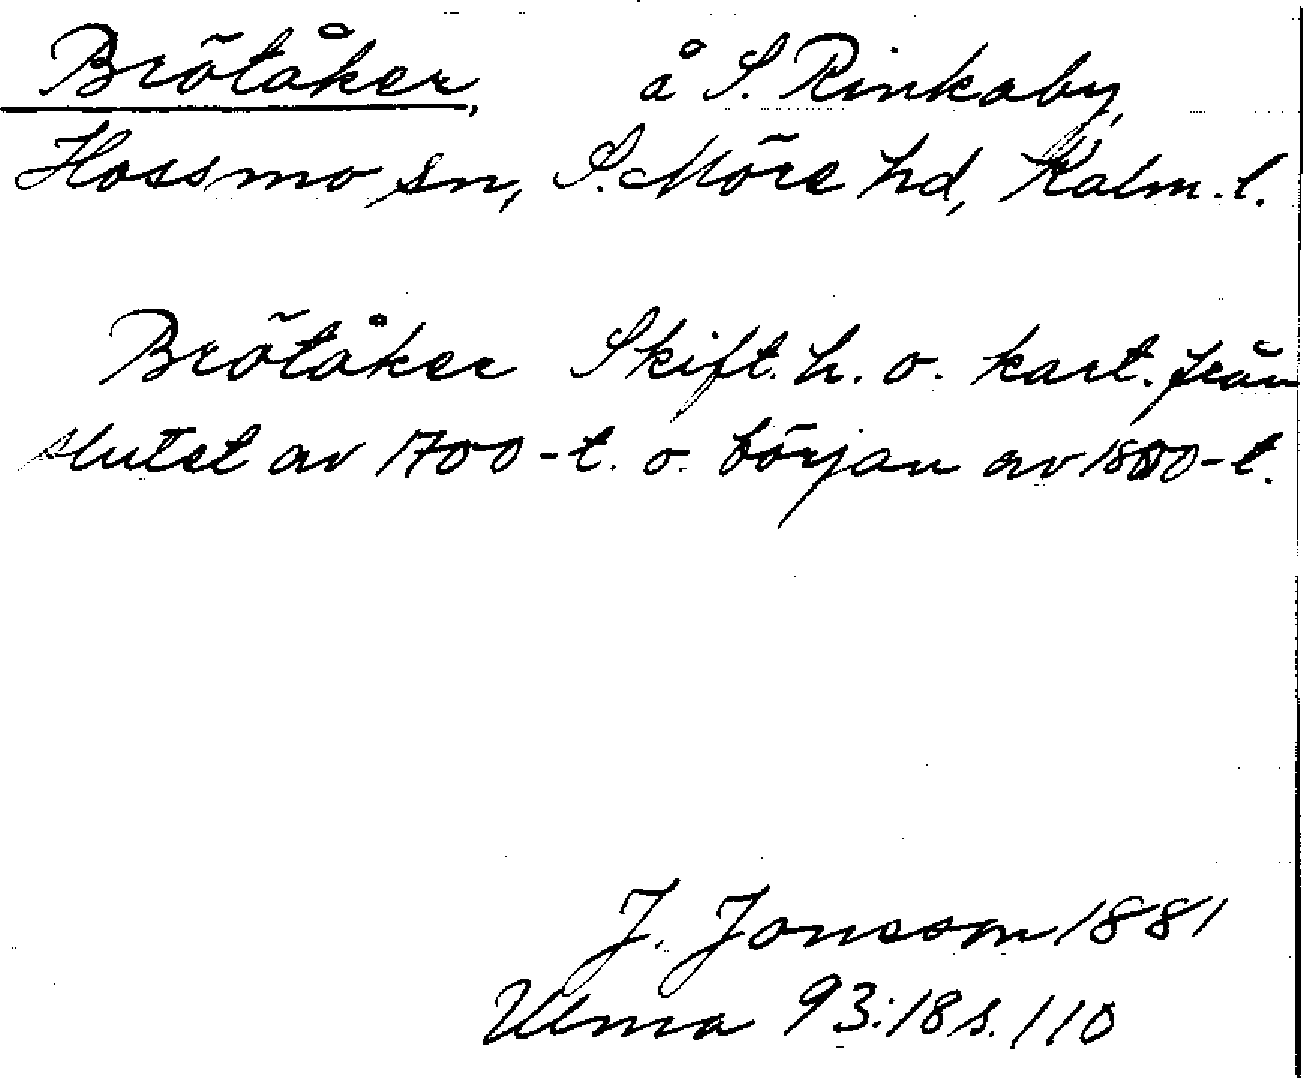 Brötåker, å S. Rinkaby,
Hossmo sn, S. Möre hd, Kalm. l.
Brötåker Skift. h. o. kart. från
slutet av 1700-t. o. början av 1800-t.
J. Jonsson 1881
Ulma 93:18 s. 110